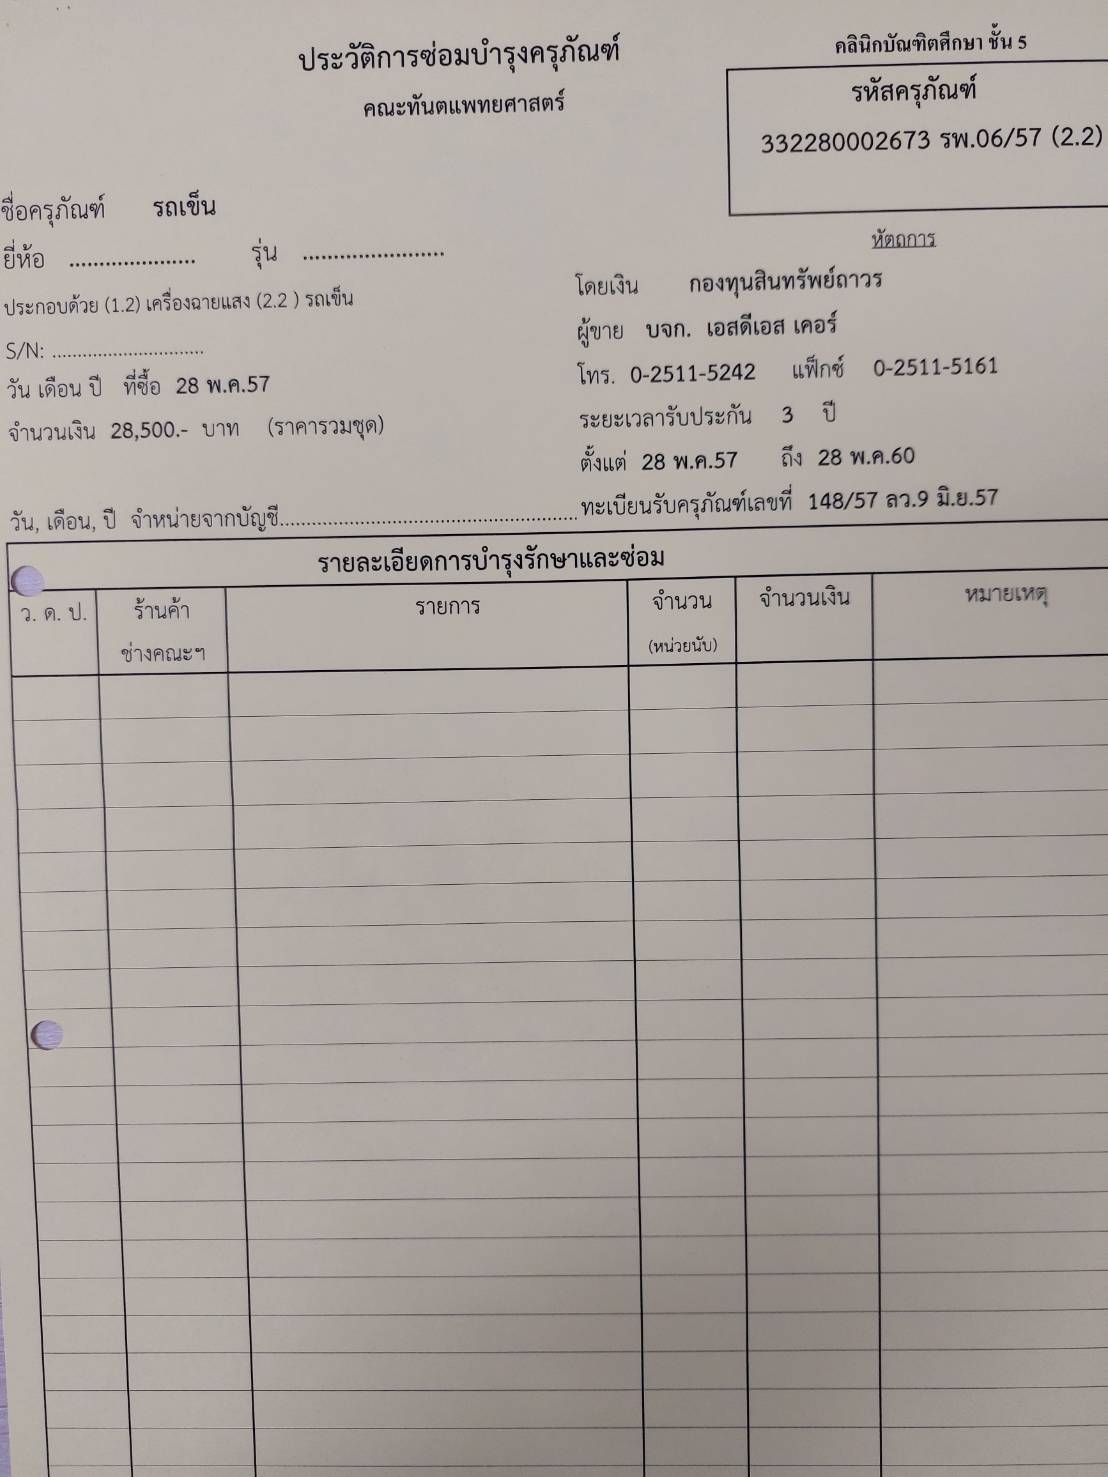 คลินิกบัณฑิตศึกษา ชั้น 5
ประวัติการซ่อมบำรุงครุภัณฑ์
คณะทันตแพทยศาสตร์
รหัสครุภัณฑ์
332280002673 รพ.06/57 (2.2)
หัตถการ
ชื่อครุภัณฑ์ รถเข็น
ยี่ห้อ ..................... รุ่น ........................
ประกอบด้วย (1.2) เครื่องฉายแสง (2.2 ) รถเข็น
S/N: ..............................
วัน เดือน ปี ที่ซื้อ 28 พ.ค.57
จำนวนเงิน 28,500.- บาท (ราคารวมชุด)
โดยเงิน กองทุนสินทรัพย์ถาวร
ผู้ขาย บจก. เอสดีเอส เคอร์
โทร. 0-2511-5242 แฟ็กซ์ 0-2511-5161
ระยะเวลารับประกัน 3 ปี
ตั้งแต่ 28 พ.ค.57 ถึง 28 พ.ค.60
วัน, เดือน, ปี จำหน่ายจากบัญชี.................................................. ทะเบียนรับครุภัณฑ์เลขที่ 148/57 ลว.9 มิ.ย.57
รายละเอียดการบำรุงรักษาและซ่อม
ว. ด. ป. ร้านค้า รายการ จำนวน จำนวนเงิน หมายเหตุ
ช่างคณะฯ (หน่วยนับ)